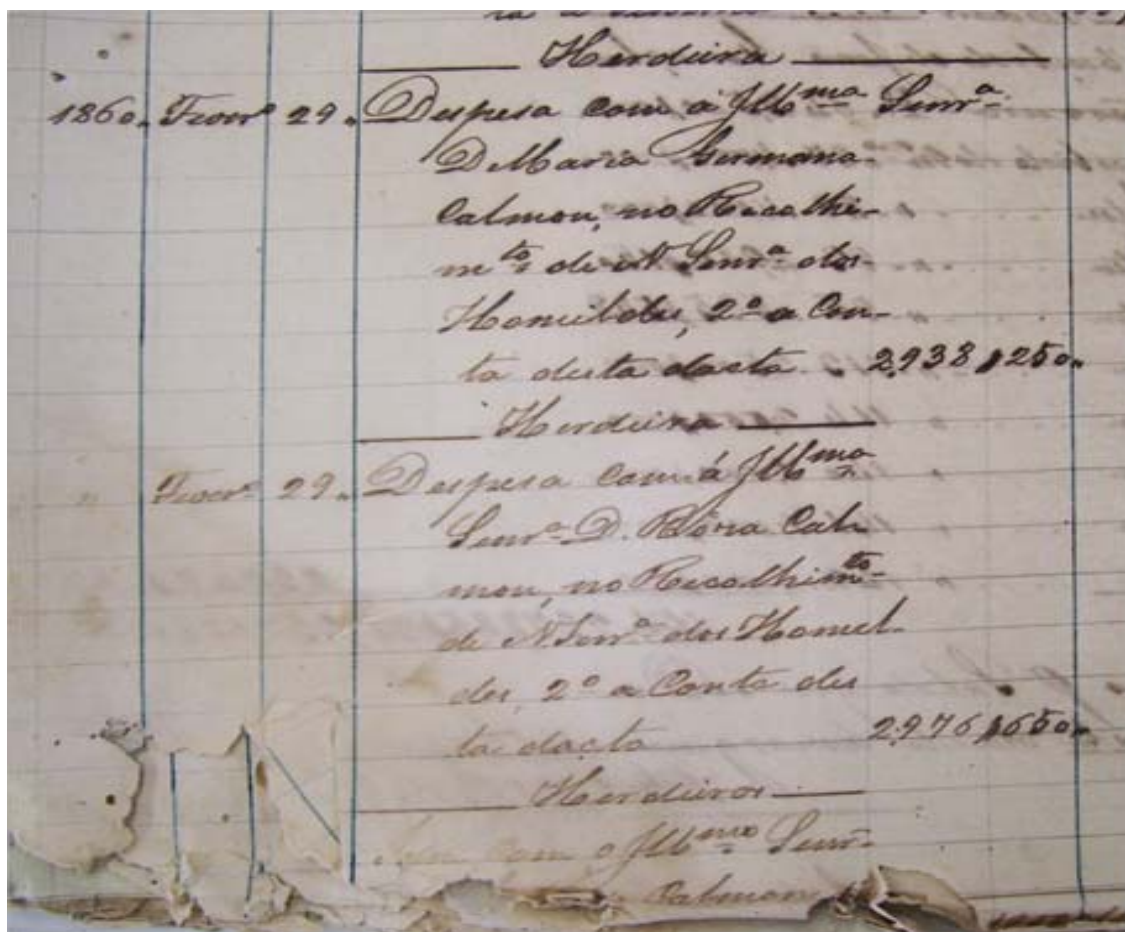 Herdeira
1860. Fever.º 29. Despesa com a Illma Senr.ª
D. Maria Germana
Calmon, no Recolhi-
mto de N Senr.ª dos
Homildes, 2º a Con-
ta desta dacta . 2,938$250.
Herdeira
" Fever.º 29. Despesa com á Illma
Senr.ª D. Roza Cal-
mon, no Recolhimto
de N Senr.ª dos Homil-
des, 2º a Conta des
ta dacta 2,976$650.
Herdeiros
com o Illmo Senr.
Calmon